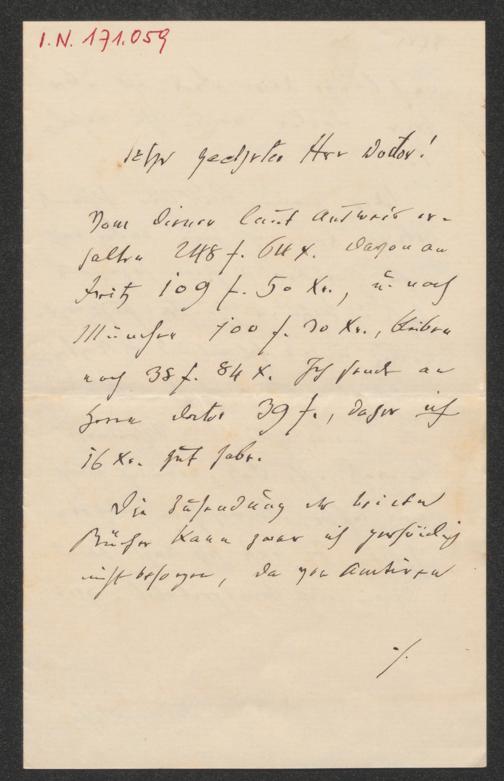 I.N. 171.059
Sehr geehrter Herr Doctor!
Vom Diener laut Ausweis er-
halten 248 f. 64 X. Davon an
Fritz 109 f. 50 Xr., u. nach
München 100 f. 30 Xr., bleiben
noch 38 f. 84 X. Ich sende an
Herrn Doctor 39 f., daher ich
16 Xr. gut habe.
Die Zusendung der beiden
Bücher kann zwar ich persönlich
nicht besorgen, da von
./.